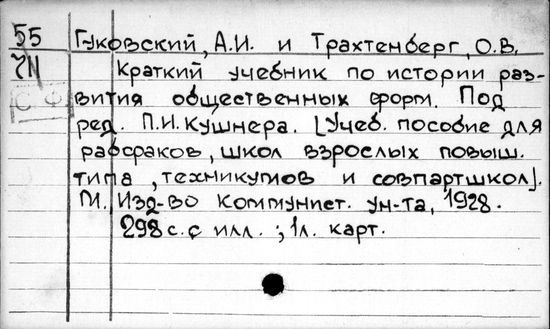 55 Гуковский, А.И. и Трахтенберг, О.В.
Краткий учебник по истории раз-
С Ф вития общественных форм. Под
ред. П.И. Кушнера. [Учеб. пособие для
рабфаков, школ взрослых повыш.
типа, техникумов и совпартшкол].
М., Изд-во Коммунист. ун-та, 1928.
298 с. с илл.; 1л. карт.